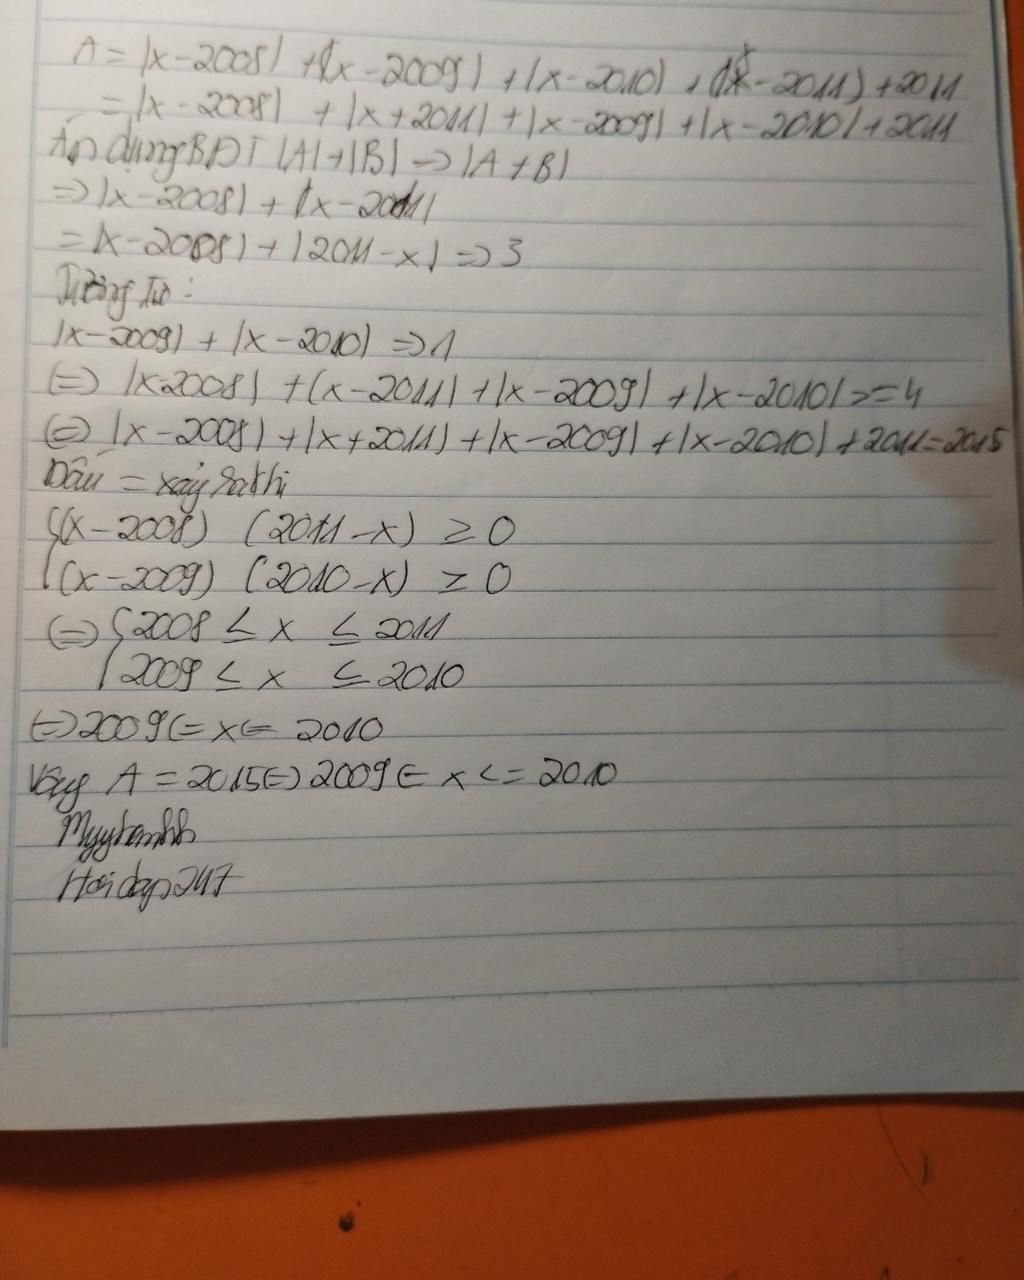 A = |x-2008| + |x-2009| + |x-2010| + |x-2011| + 2011
= |x-2008| + |x+2011| + |x-2009| + |x-2010| + 2011
Áp dụng BĐT |A|+|B| => |A+B|
=> |x-2008| + |x-2011|
= |x-2008| + |2011-x| => 3
Tương Tự:
|x-2009| + |x-2010| => 1
(=) |x-2008| + |x-2011| + |x-2009| + |x-2010| >= 4
(=) |x-2008| + |x+2011| + |x-2009| + |x-2010| + 2011 = 2015
Dấu = xảy ra khi
{(x-2008) (2011-x) ≥ 0
(x-2009) (2010-x) ≥ 0
(=) {2008 ≤ x ≤ 2011
2009 ≤ x ≤ 2010
(=) 2009 <= x <= 2010
Vậy A = 2015 (=) 2009 <= x <= 2010
Hoidap247